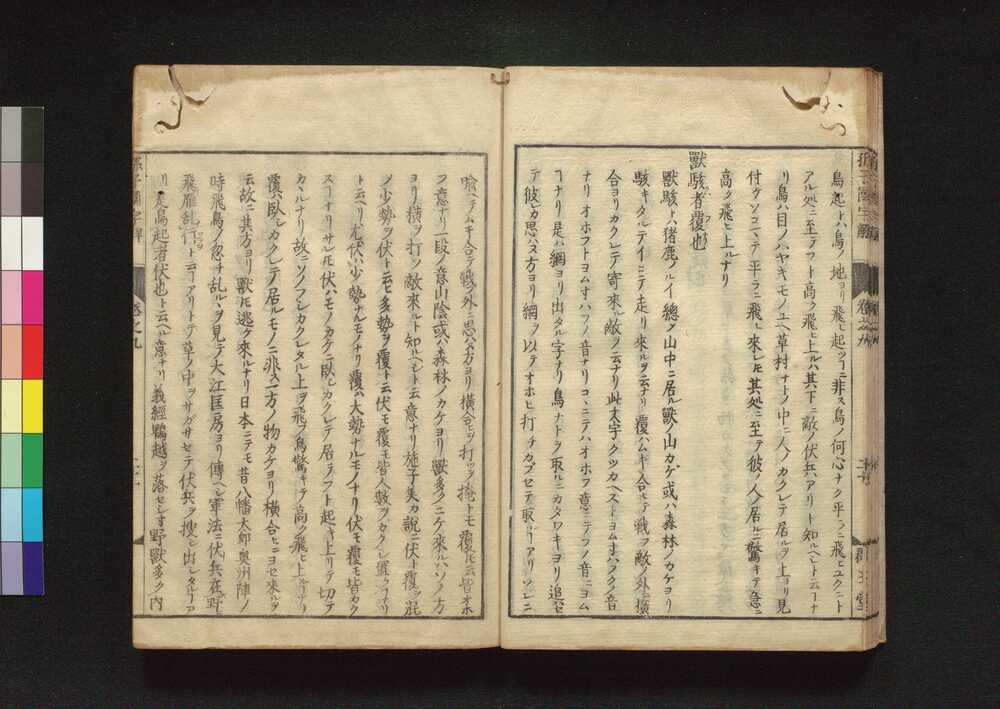 鳥起トハ鳥ノ地ヨリ飛ヒ起ツコニ非ス鳥ノ何心ナク平ラニ飛ヒユクニト
アル処ニ至テフト高ク飛ヒ上ルハ其下ニ敵ノ伏兵アリト知ルヘシト云コナ
リ鳥ハ目ノハヤキモノユヘ草村ナトノ中ニ人ノカクレテ居ルヲ上ヨリ見
付ケソコマテ平ラニ飛ヒ來レ𪜈其処ニ至テ彼ノ人居ルニ驚キテ急ニ
高ク飛ヒ上ルナリ
獸駭者覆也
獸駭トハ猪鹿ノルイ總シテ山中ニ居ル獸ノ山カゲ或ハ森林ノカケヨリ
駭キタルテイニテ走リ來ルヲ云ナリ覆ハムキ合ルテ戰フ敵ノ外ニ横
合ヨリカクレテ寄來ル敵ノ云ナリ此文字クツカヘストヨムキハフクノ音
ナリオホフトヨムキハフノ音ナリコヽニテハオホフ意ニテフノ音ニヨム
コナリ是ハ網ヨリ出タル字ナリ鳥ナトヲ取ルニカタワキヨリ追セ
テ彼レカ思ハヌ方ヨリ網ヲ以テオホヒ打チカブセテ取コアリソレニ
喩ヘテムキ合テ戰フ外ニ思ハヌ方ヨリ横合ヒヲ打ツヲ掩トモ覆𪜈云皆オホ
フ意ナリ一段ノ意山陰或ハ森林ノカケヨリ獸多クニケ來ルハソノ方
ヨリ横ヲ打ツ敵來ルト知ルヘシト云意ナリ施子美カ説ニ伏ト覆ヲ混
ノ少勢ヲ伏ト云ヒ多勢ヲ覆ト云伏モ覆モ皆人數ヲカクシ置クコナリ
ト云ヘリ尤伏ハ少勢ナルモノナリ覆ハ大勢ナルモノナリ伏モ覆モ皆カク
スコナリサレ𪜈伏ハモノカケニ臥シカクレテ居テフト起キ上リテ切テ
カヽルナリ故ニソノフシカクレタル上ヲ飛フ鳥驚キテ高ク飛ヒ上ルナリ
覆ハ臥シカクレテ居ルモノニ非ス一方ノ物カケヨリ横合ニヨセ來ルヲ
云故ニ其方ヨリ獸𪜈逃ケ來ルナリ日本ニテモ昔八幡太郎奥州陣ノ
時飛鳥ノ忽チ乱ルヽヲ見テ大江匡房ヨリ傳ヘシ軍法ニ伏兵在野
飛雁乱行ト云コアリトテ草ノ中ヲサガサセテ伏兵ヲ搜シ出シタルコア
リ是鳥起者伏也ト云ヘル意ナリ義經鵯越ヲ落セシキ野獸多ク内